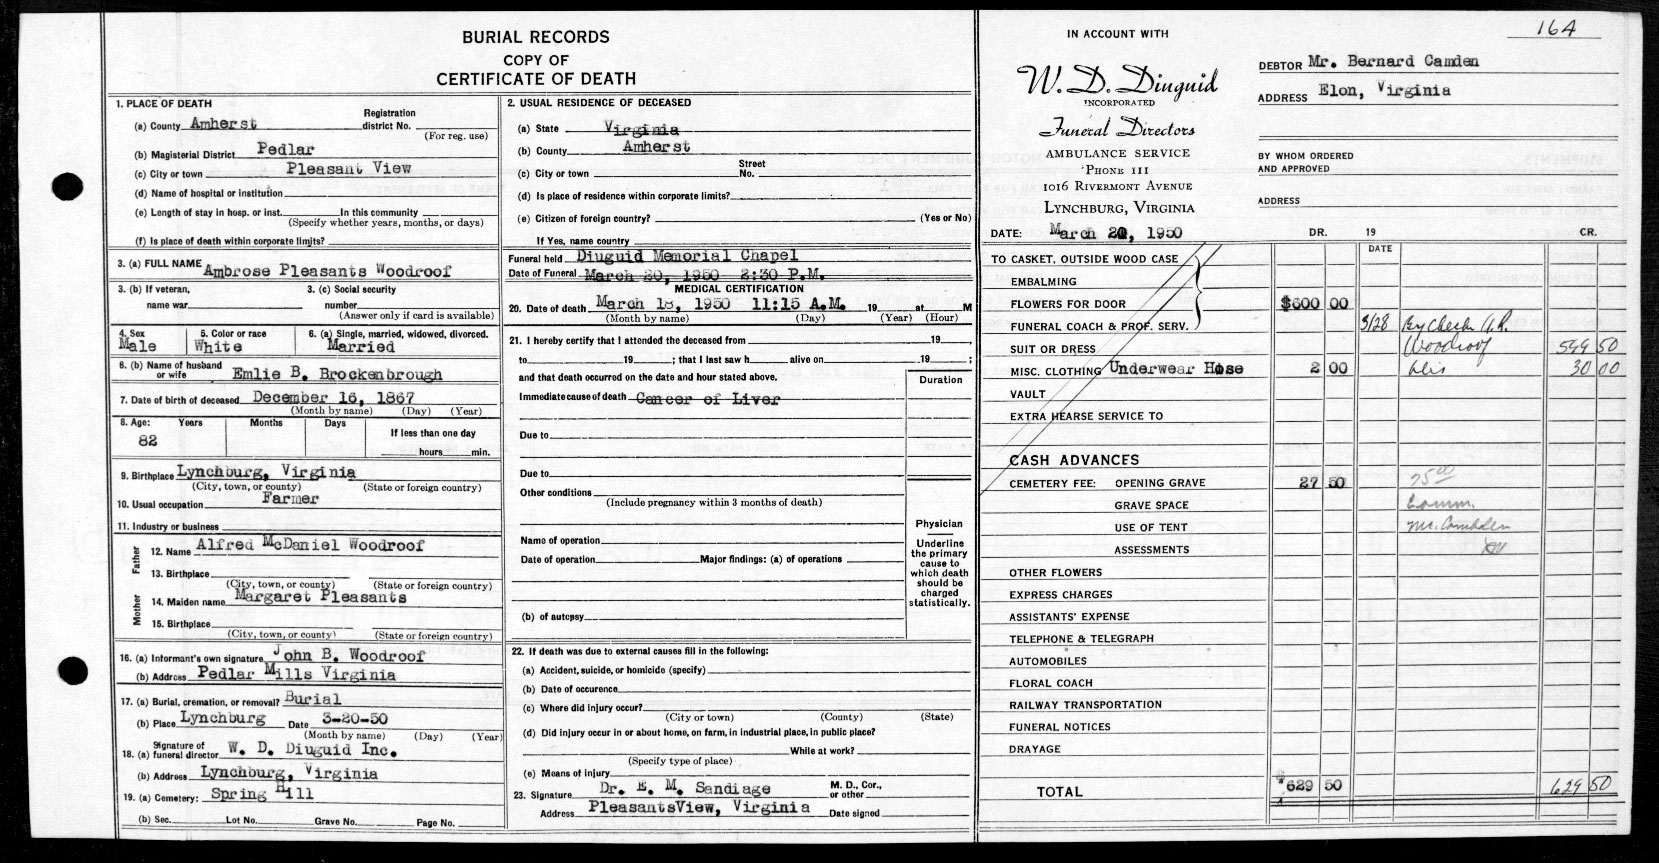 BURIAL RECORDS
COPY OF
CERTIFICATE OF DEATH
1. PLACE OF DEATH
(a) County Amherst Registration district No.
(For reg. use)
(b) Magisterial District Pedlar
(c) City or town Pleasant View
(d) Name of hospital or institution
(e) Length of stay in hosp. or inst. In this community
(Specify whether years, months, or days)
(f) Is place of death within corporate limits?
3. (a) FULL NAME Ambrose Pleasants Woodroof
3. (b) If veteran, 3. (c) Social security
name war number
(Answer only if card is available)
4. Sex 5. Color or race 6. (a) Single, married, widowed, divorced.
Male White Married
6. (b) Name of husband or wife Emlie B. Brockenbrough
7. Date of birth of deceased December 16, 1867
(Month by name) (Day) (Year)
8. Age: Years Months Days If less than one day
82 hours min.
9. Birthplace Lynchburg, Virginia
(City, town, or county) (State or foreign country)
10. Usual occupation Farmer
11. Industry or business
Father
12. Name Alfred McDaniel Woodroof
13. Birthplace
(City, town, or county) (State or foreign country)
Mother
14. Maiden name Margaret Pleasants
15. Birthplace
(City, town, or county) (State or foreign country)
16. (a) Informant's own signature John B. Woodroof
(b) Address Pedlar Mills Virginia
17. (a) Burial, cremation, or removal? Burial
(b) Place Lynchburg Date 3-20-50
(Month by name) (Day) (Year)
18. (a) Signature of funeral director W. D. Diuguid Inc.
(b) Address Lynchburg, Virginia
19. (a) Cemetery: Spring Hill
(b) Sec. Lot No. Grave No. Page No.
2. USUAL RESIDENCE OF DECEASED
(a) State Virginia
(b) County Amherst
(c) City or town Street No.
(d) Is place of residence within corporate limits?
(e) Citizen of foreign country? (Yes or No)
If Yes, name country
Funeral held Diuguid Memorial Chapel
Date of Funeral March 20, 1950 2:30 P.M.
MEDICAL CERTIFICATION
20. Date of death March 18, 1950 11:15 A.M. 19 at M
(Month by name) (Day) (Year) (Hour)
21. I hereby certify that I attended the deceased from 19 ,
to 19 ; that I last saw h alive on ,19 ;
and that death occurred on the date and hour stated above.
Duration
Immediate cause of death Cancer of Liver
Due to
Due to
Other conditions
(Include pregnancy within 3 months of death)
Physician
Underline the primary cause to which death should be charged statistically.
Name of operation
Date of operation Major findings: (a) of operations
(b) of autopsy
22. If death was due to external causes fill in the following:
(a) Accident, suicide, or homicide (specify)
(b) Date of occurence
(c) Where did injury occur?
(City or town) (County) (State)
(d) Did injury occur in or about home, on farm, in industrial place, in public place?
While at work?
(Specify type of place)
(e) Means of injury
23. Signature Dr. E. M. Sandiage M. D., Cor., or other
Address PleasantsView, Virginia Date signed
164
IN ACCOUNT WITH
W. D. Diuguid
INCORPORATED
Funeral Directors
AMBULANCE SERVICE
PHONE 111
1016 RIVERMONT AVENUE
LYNCHBURG, VIRGINIA
DATE: March 20, 1950
DEBTOR Mr. Bernard Camden
ADDRESS Elon, Virginia
BY WHOM ORDERED
AND APPROVED
ADDRESS
DR. 19 CR.
DATE
TO CASKET, OUTSIDE WOOD CASE
EMBALMING
FLOWERS FOR DOOR $600 00
FUNERAL COACH & PROF. SERV. 3/28 By Check A.P.
SUIT OR DRESS Woodroof 599 50
MISC. CLOTHING Underwear Hose 2 00 Dis 30 00
VAULT
EXTRA HEARSE SERVICE TO
CASH ADVANCES
CEMETERY FEE: OPENING GRAVE 27 50 75 00
GRAVE SPACE Comm.
USE OF TENT Mr. Cambden
ASSESSMENTS
OTHER FLOWERS
EXPRESS CHARGES
ASSISTANTS' EXPENSE
TELEPHONE & TELEGRAPH
AUTOMOBILES
FLORAL COACH
RAILWAY TRANSPORTATION
FUNERAL NOTICES
DRAYAGE
TOTAL $629 50 629 50